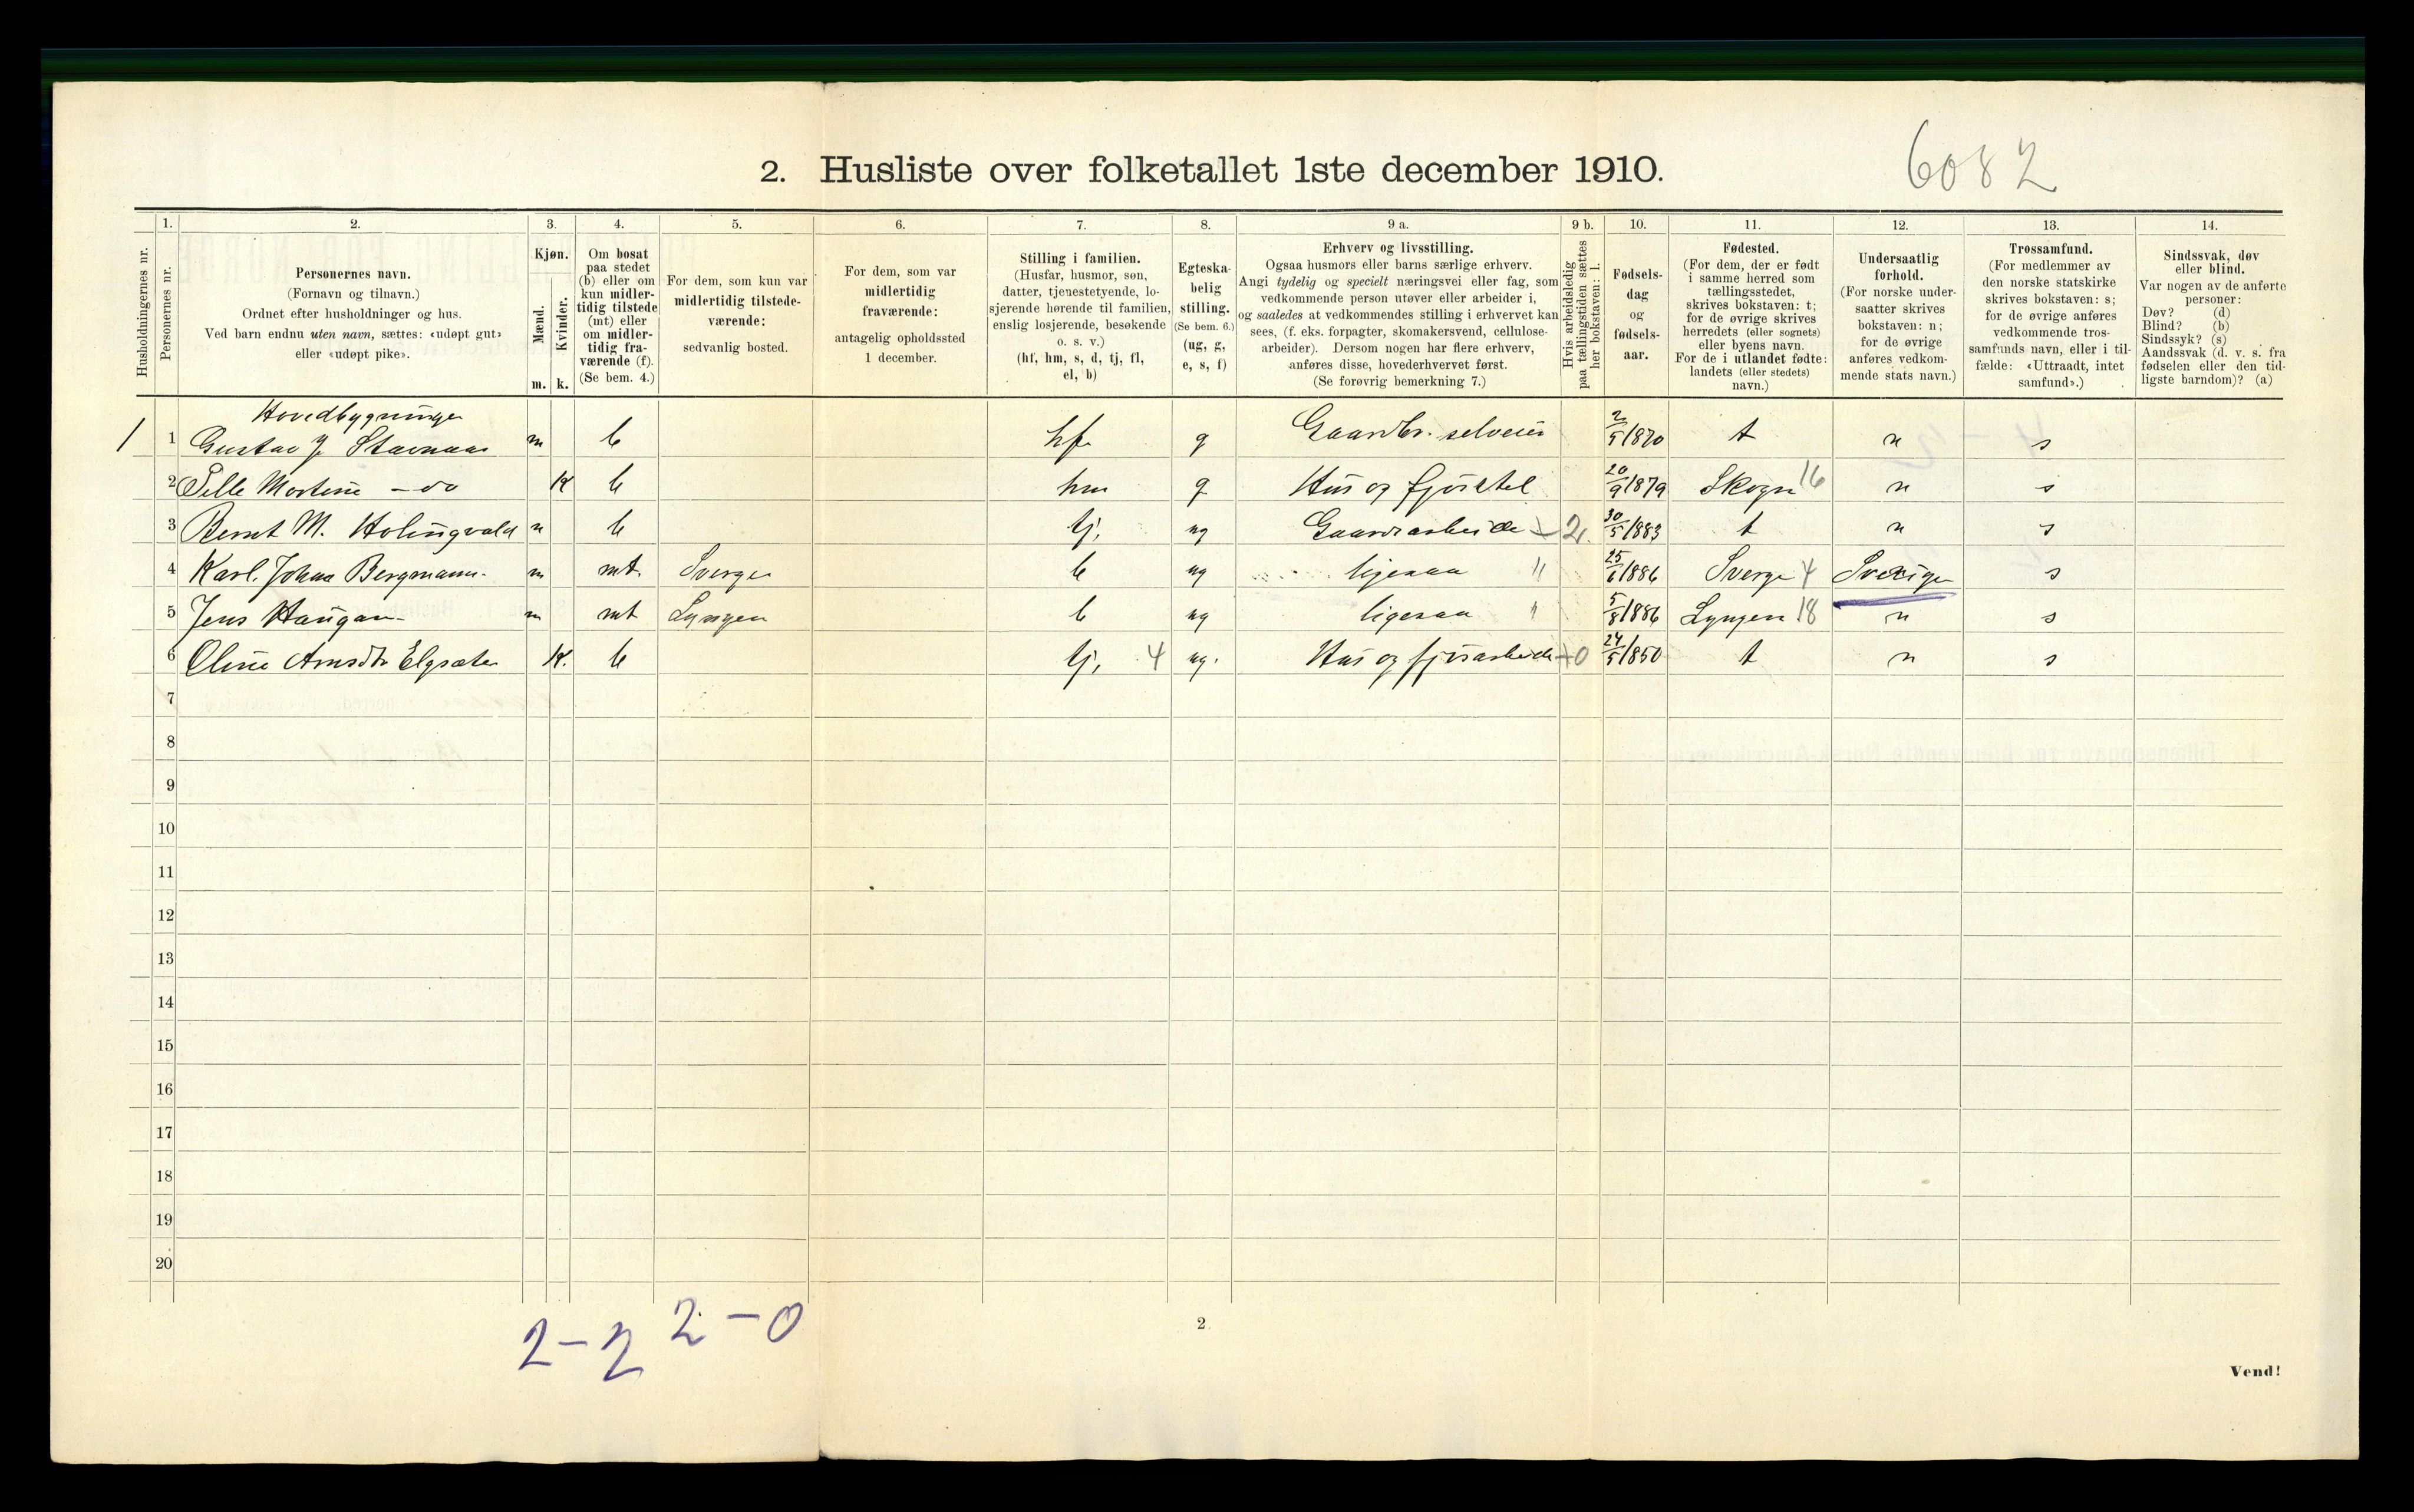 6082
2. Husliste over folketallet 1ste december 1910.
Husholdningernes nr.
1.
Personernes nr.
2.
Personernes navn.
(Fornavn og tilnavn.)
Ordnet efter husholdninger og hus.
Ved barn endnu uten navn, sættes: «udøpt gut»
eller «udøpt pike».
3.
Kjøn.
Mænd.
Kvinder.
m. k.
4.
Om bosat
paa stedet
(b) eller om
kun midler-
tidig tilstede
(mt) eller
om midler-
tidig fra-
værende (f).
(Se bem. 4.)
5.
For dem, som kun var
midlertidig tilstede-
værende:
sedvanlig bosted.
6.
For dem, som var
midlertidig
fraværende:
antagelig opholdssted
1 december.
7.
Stilling i familien.
(Husfar, husmor, søn,
datter, tjenestetyende, lo-
sjerende hørende til familien,
enslig losjerende, besøkende
o. s. v.)
(hf, hm, s, d, tj, fl,
el, b)
8.
Egteska-
belig
stilling.
(Se bem. 6.)
(ug, g,
e, s, f)
9 a.
Erhverv og livsstilling.
Ogsaa husmors eller barns særlige erhverv.
Angi tydelig og specielt næringsvei eller fag, som
vedkommende person utøver eller arbeider i,
og saaledes at vedkommendes stilling i erhvervet kan
sees, (f. eks. forpagter, skomakersvend, cellulose-
arbeider). Dersom nogen har flere erhverv,
anføres disse, hovederhvervet først.
(Se forøvrig bemerkning 7.)
9 b.
Hvis arbeidsledig
paa tællingstiden sættes
her bokstaven: l.
10.
Fødsels-
dag
og
fødsels-
aar.
11.
Fødested.
(For dem, der er født
i samme herred som
tællingsstedet,
skrives bokstaven: t;
for de øvrige skrives
herredets (eller sognets)
eller byens navn.
For de i utlandet fødte:
landets (eller stedets)
navn.)
12.
Undersaatlig
forhold.
(For norske under-
saatter skrives
bokstaven: n;
for de øvrige
anføres vedkom-
mende stats navn.)
13.
Trossamfund.
(For medlemmer av
den norske statskirke
skrives bokstaven: s;
for de øvrige anføres
vedkommende tros-
samfunds navn, eller i til-
fælde: «Uttraadt, intet
samfund».)
14.
Sindssvak, døv
eller blind.
Var nogen av de anførte
personer:
Døv? (d)
Blind? (b)
Sindssyk? (s)
Aandssvak (d. v. s. fra
fødselen eller den tid-
ligste barndom)? (a)
Hovedbygninger
1 1 Gustav J. Stavnaas m b hf g Gaardbr. selveier 2/5 1870 t n s
2 Pelle Martine - do K b hm g Hus og fjøsstel 20/9 1879 Skogn 16 n s
3 Bernt M. Holingvald m b tj. ug Gaardsarbeide 2. 30/5 1883 t n s
4 Karl. Johan Bergmann. m mt. Sverge b ug ligesaa " 25/6 1886 Sverge 4 Sverige s
5 Jens Haugan m mt Lyngen b ug ligesaa " 5/8 1886 Lyngen 18 n s
6 Oline Arnsdtr Elgsæter K. b tj. 4 ug. Hus og fjøsarbeide 0 24/5 1850 t n s
7
8
9
10
11
12
13
14
15
16
17
18
19
20
2-2 2-0
2
Vend!